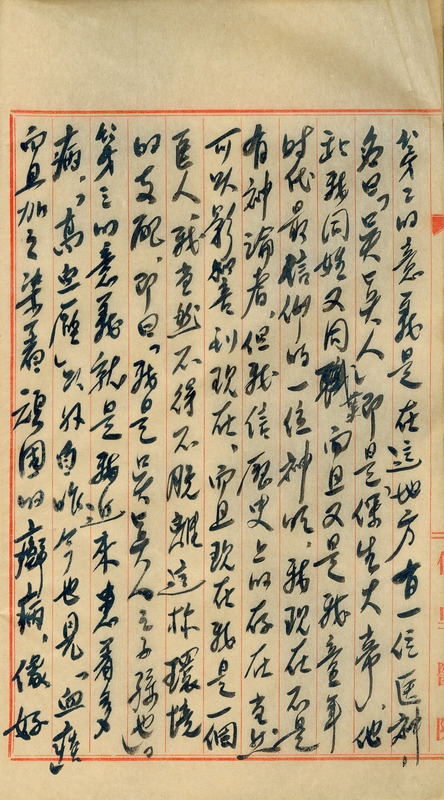 第二的意義是在這地方有一位医神
名曰「吳真人」即是「保生大帝」, 他
和我同姓又同職, 而且又是我童年
时代最信仰的一位神明, 我現在不是
有神論者, 但我信歷史上的存在当然
可以影響到現在, 而且現在我是一個
医人, 我当然不得不脫離這种環境
的支配, 即曰「我是吳真人之子孫也」。
第三的意義就是我近來患着多
病, 「高血壓」以外自昨今也見「血痰」
而且加之染着頑固的癬病, 好
佳里醫院